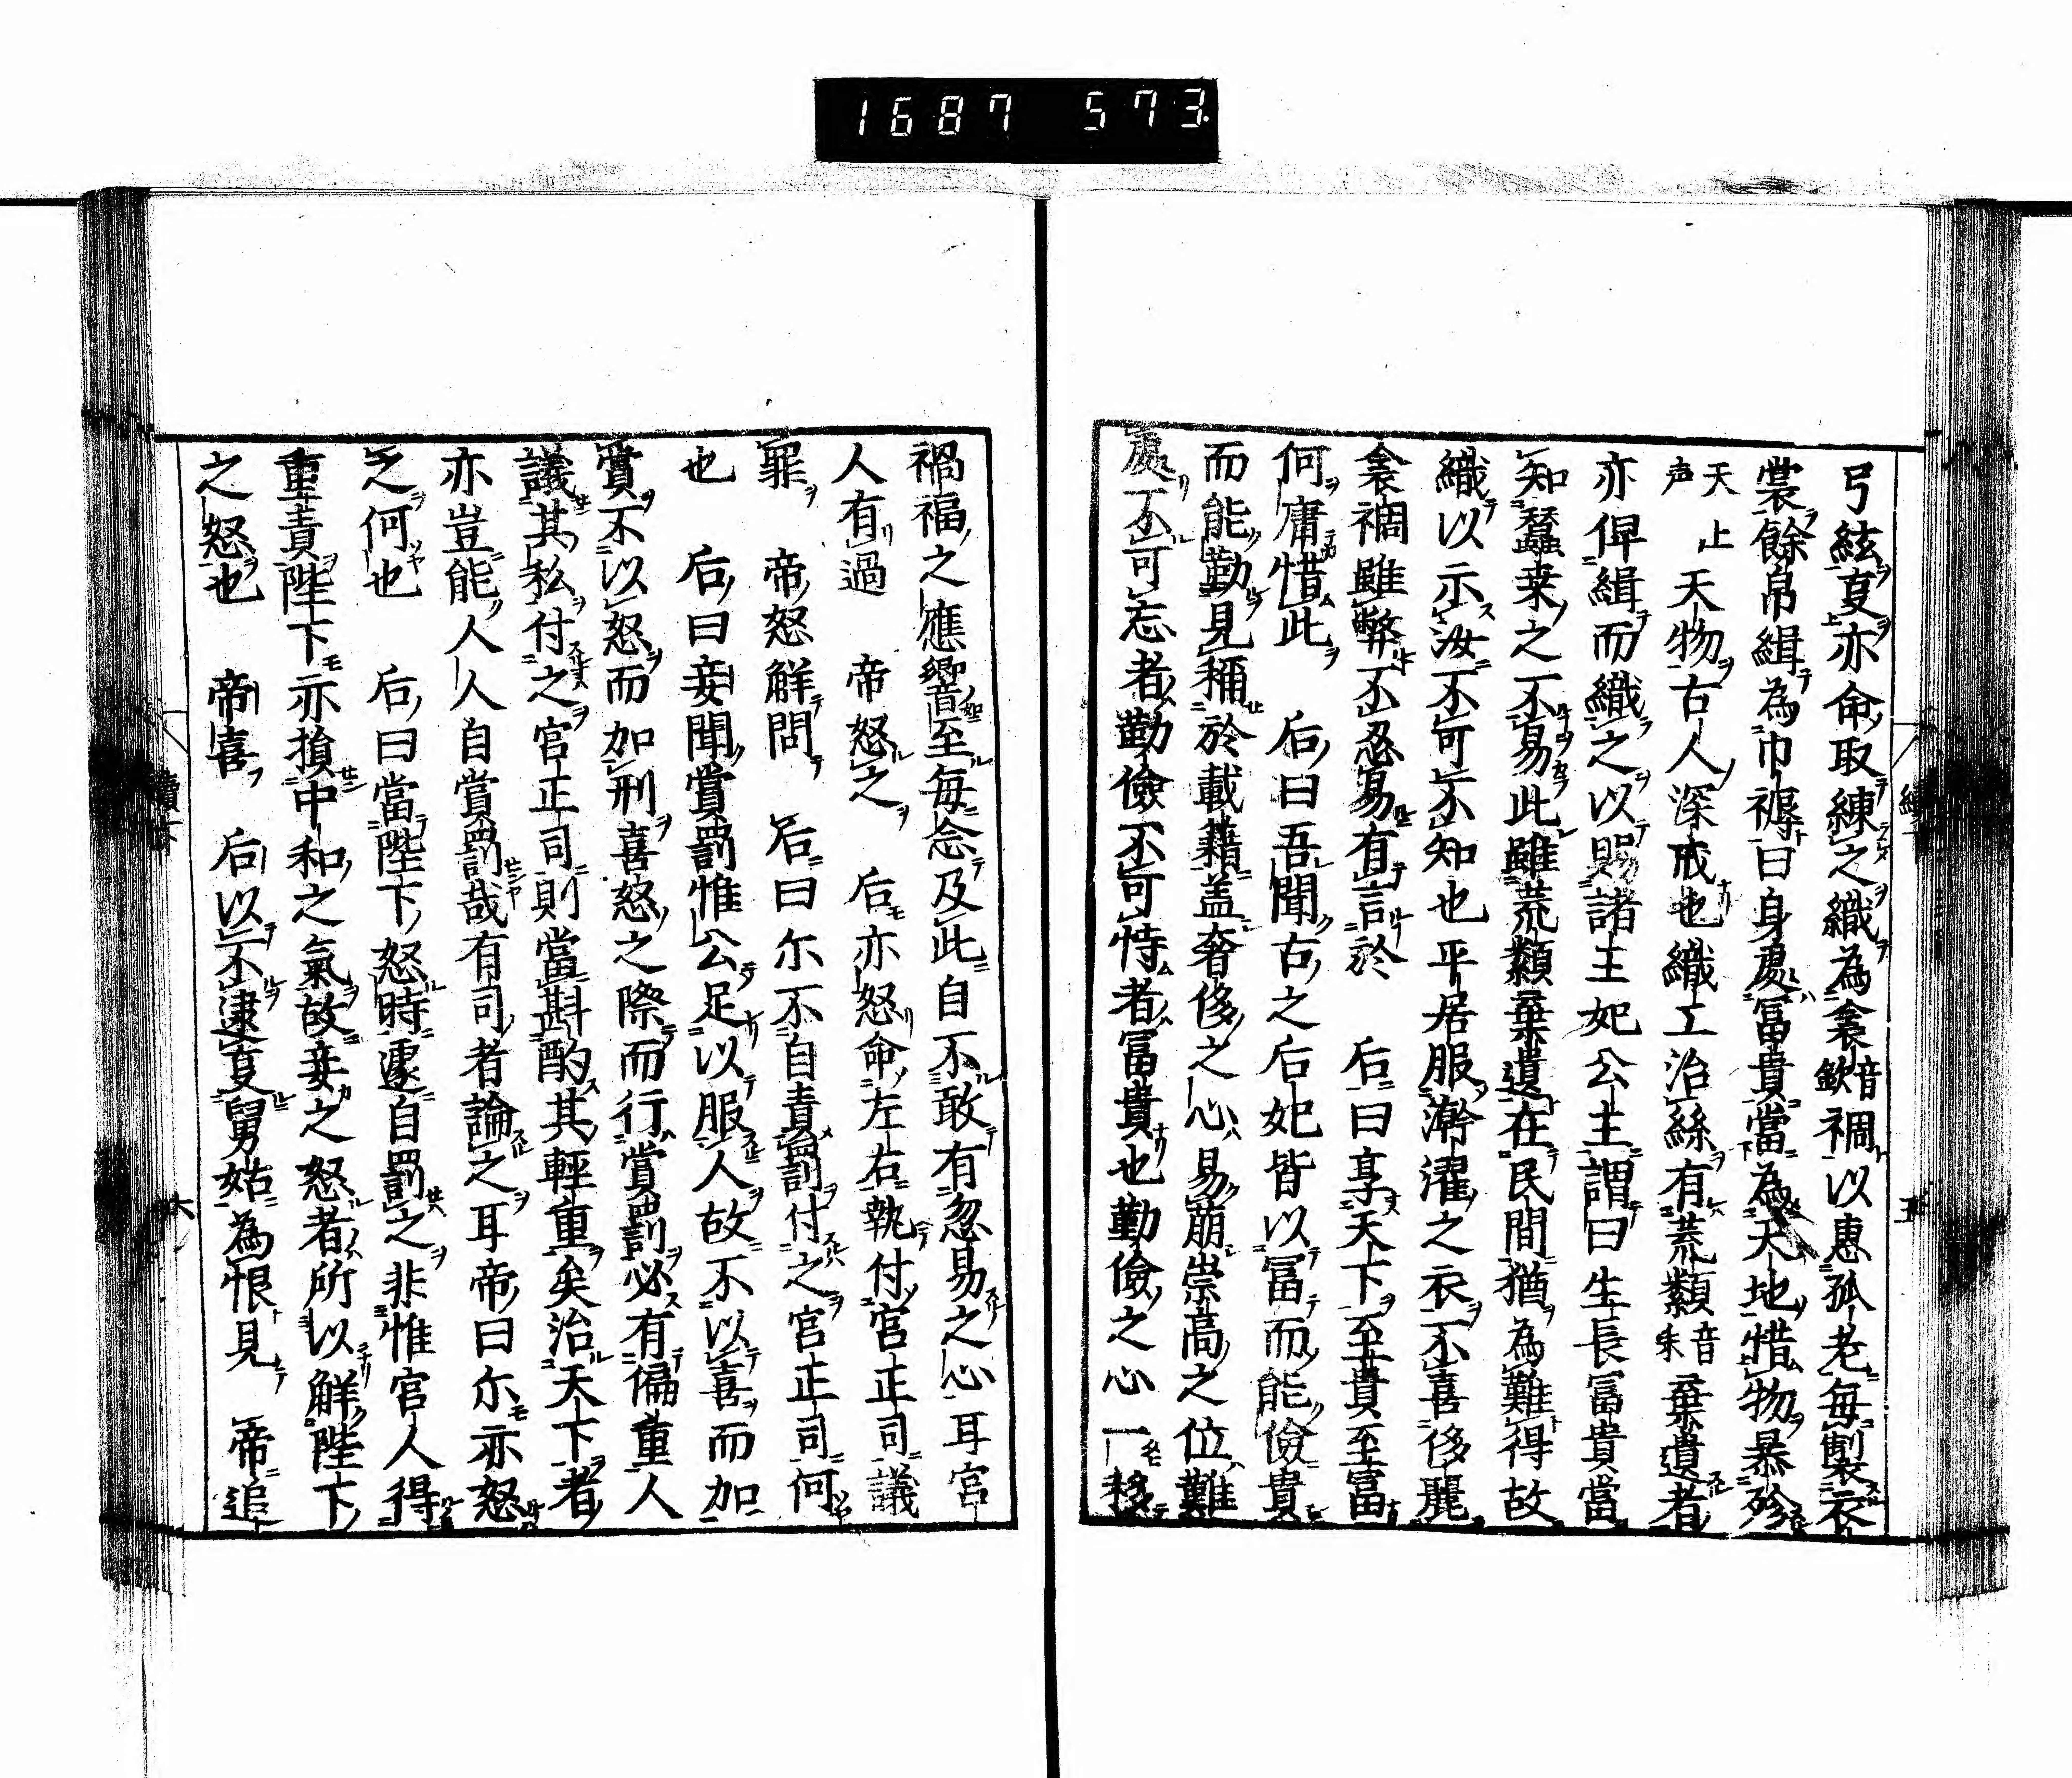 1687 573
弓絃夏亦命取練之織為衾音欽裯以惠孤老每製衣
裳餘帛緝為巾褥曰身處冨貴當為天地惜物暴殄
天上声天物古人深戒也織工治絲有荒纇音耒棄遺者
亦俾緝而織之以賜諸王妃公主謂曰生長冨貴當
知蠶桒之不易此雖荒纇棄遺在民間猶為難得故
織以示汝不可不知也平居服澣濯之衣不喜侈麗
衾裯雖弊不忍易有言於 后曰享天下至貴至冨
何庸惜此 后曰吾聞古之后妃皆以冨而能儉貴
而能勤見稱於載籍盖奢侈之心易萠崇高之位難
處不可忘者勤儉不可恃者冨貴也勤儉之心一移
禍福之應響至每念及此自不敢有忽易之心耳宮
人有過 帝怒之 后亦怒命左右執付宮正司議
罪 帝怒解問 后曰尓不自責罰付之宮正司何
也 后曰妾聞賞罰惟公足以服人故不以喜而加
賞不以怒而加刑喜怒之際而行賞罰必有偏重人
議其私付之宮正司則當斟酌其輕重矣治天下者
亦豈能人人自賞罰哉有司者論之耳帝曰尓亦怒
之何也 后曰當陛下怒時遽自罰之非惟宮人得
重責陛下亦損中和之氣故妾之怒者所以解陛下
之怒也 帝喜 后以不逮夏舅姑為恨見 帝追